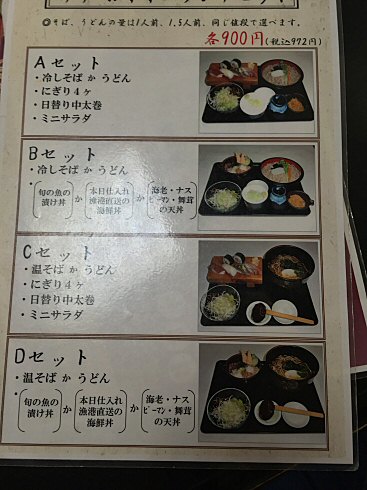 ◎そば、うどんの量は1人前、1.5人前、同じ値段で選べます。
各900円(税込972円)
Aセット
・冷しそば か うどん
・にぎり4ヶ
・日替り中太巻
・ミニサラダ
Bセット
・冷しそば か うどん
・
旬の魚の
漬け丼
か
本日仕入れ
漁港直送の
海鮮丼
か
海老・ナス
ピーマン・舞茸
の天丼
Cセット
・温そば か うどん
・にぎり4ヶ
・日替り中太巻
・ミニサラダ
Dセット
・温そば か うどん
・
旬の魚の
漬け丼
か
本日仕入れ
漁港直送の
海鮮丼
か
海老・ナス
ピーマン・舞茸
の天丼